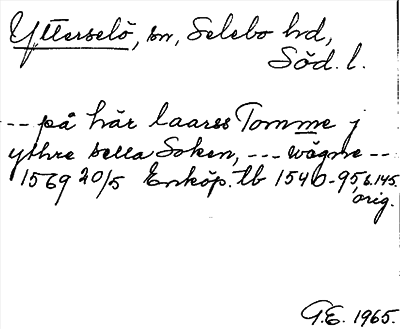 Ytterselö, sn, Selebo hd,
Söd. l.
-- på här laarss Tomme j
ythre sella Soken, --- wägne --
1569 20/5 Enköp. tb 1540-95, s. 145.
orig.
G.E. 1965.